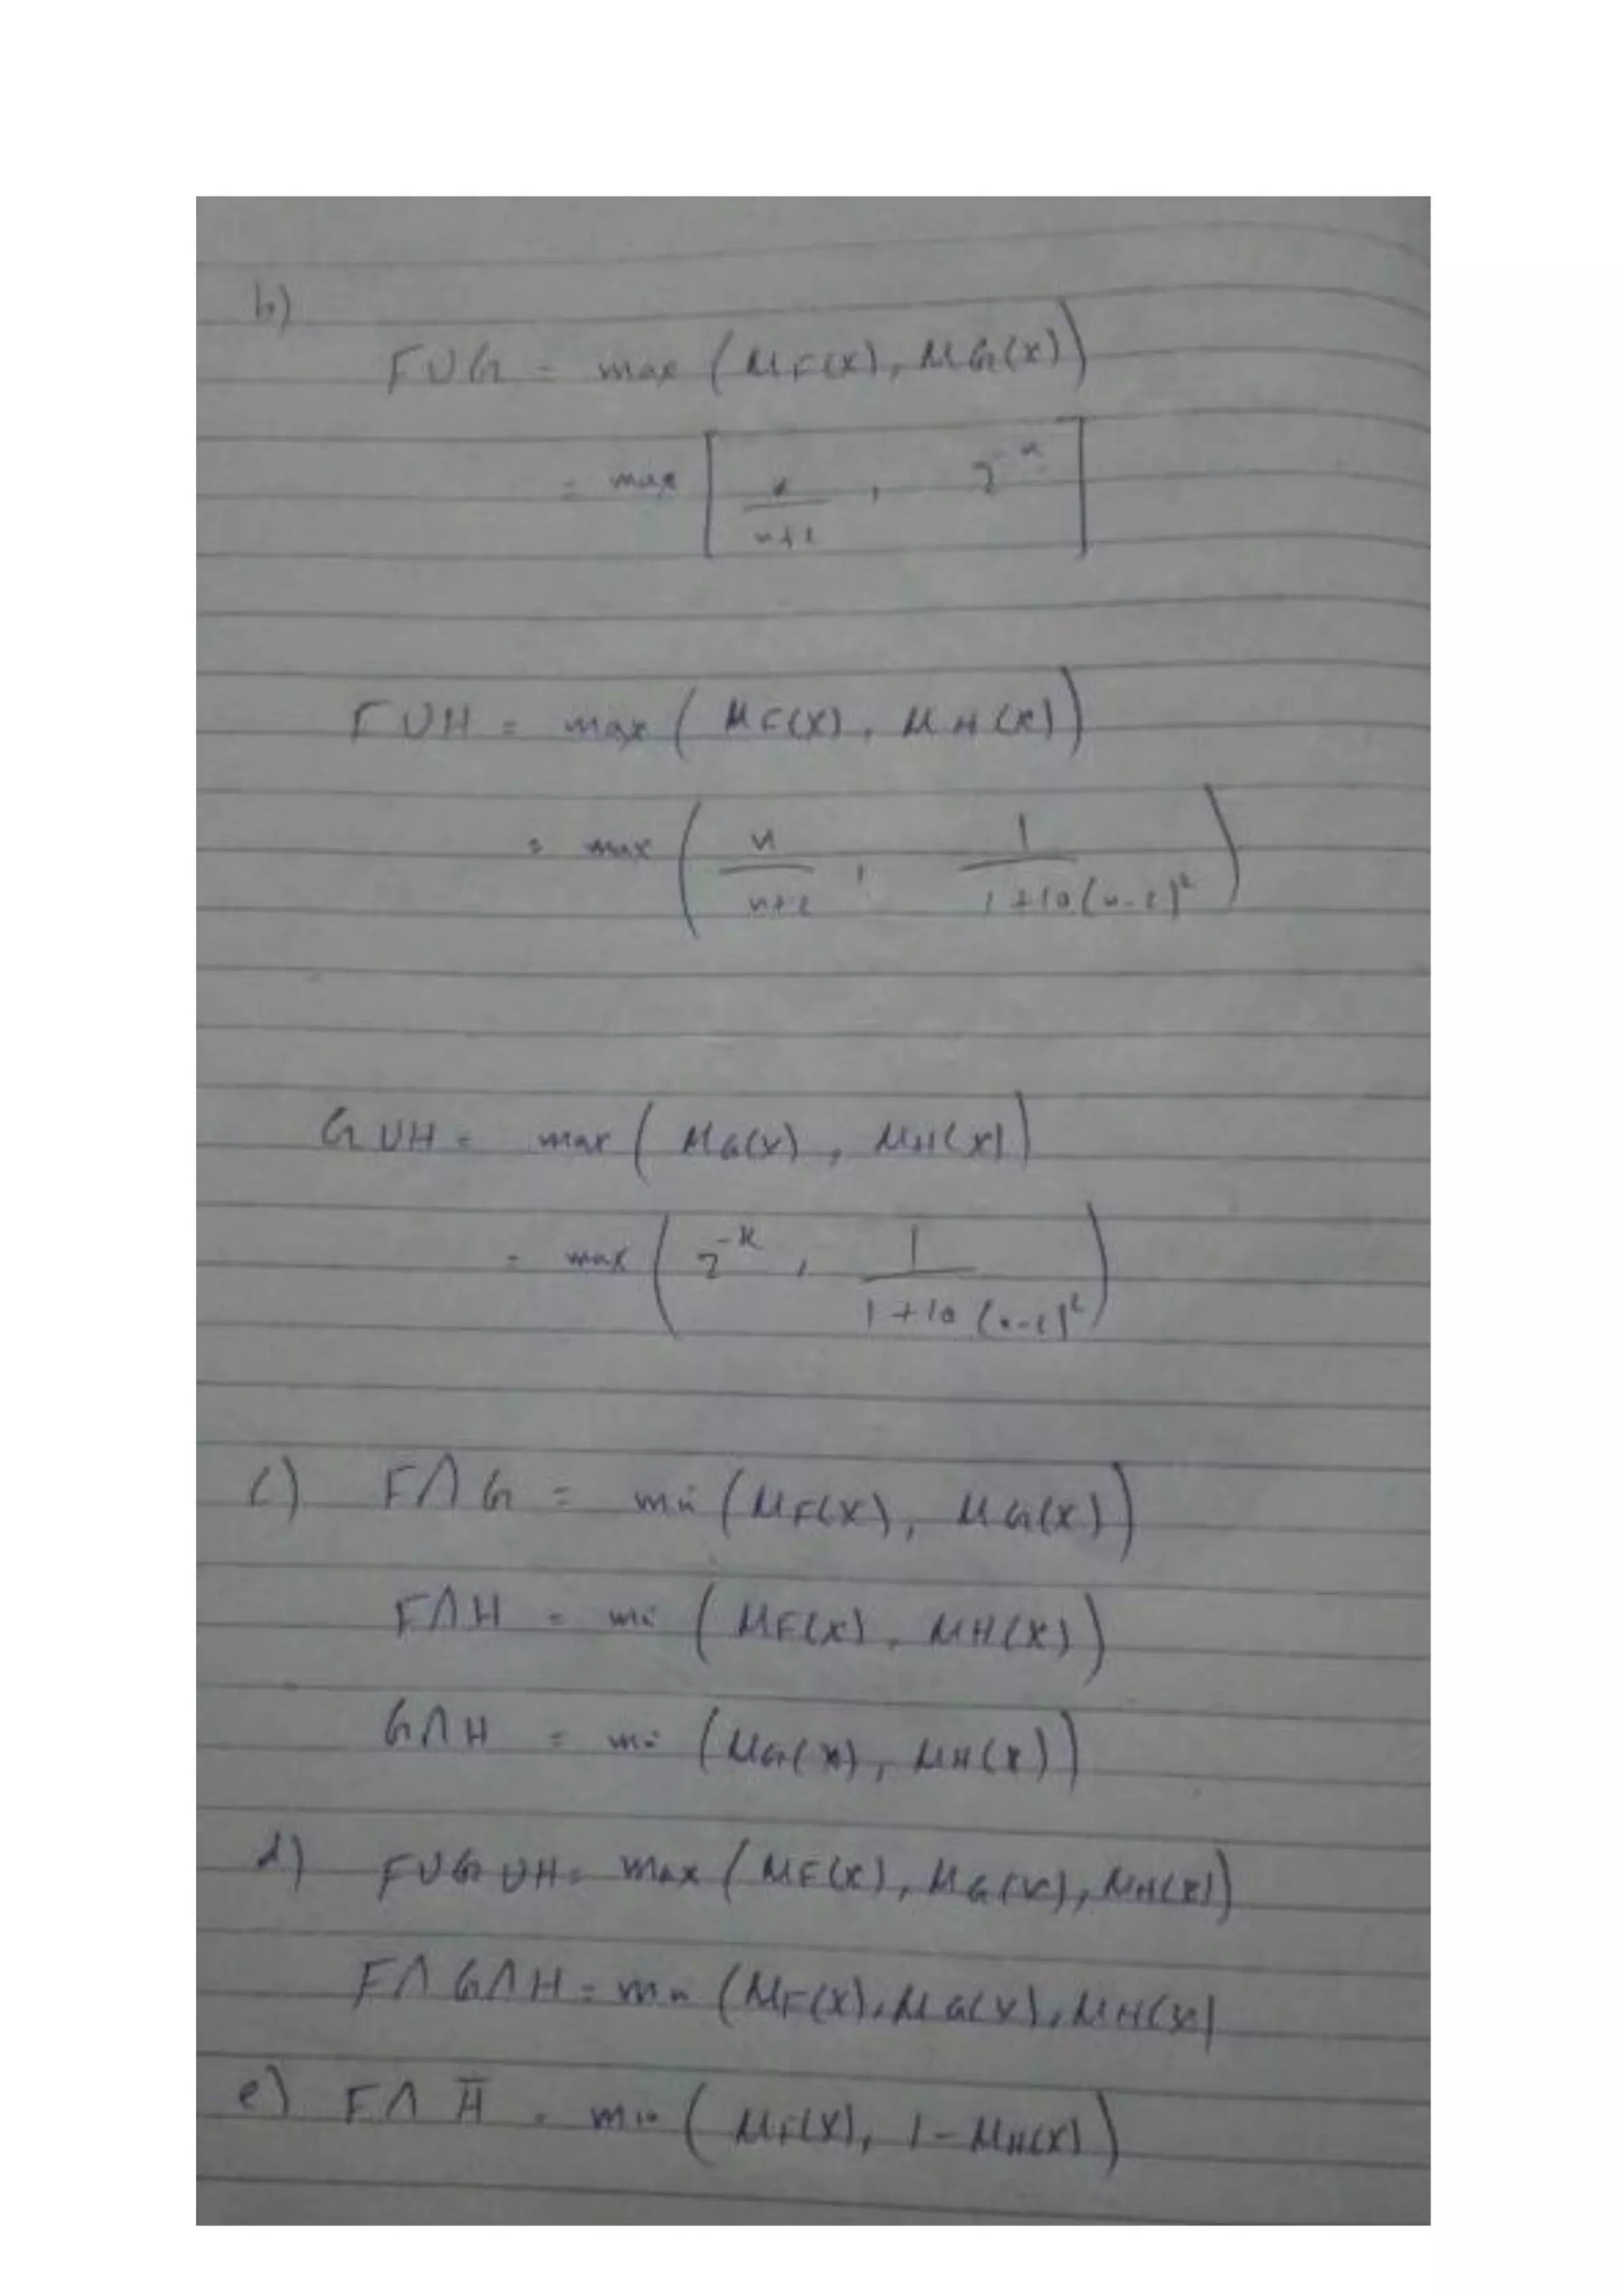 b)
F∪G = max (μF(x), μG(x))
= max [x/x+2, 2^-x]
F∪H = max (μF(x), μH(x))
= max (x/x+2, 1/1+10(x-2)²)
G∪H = max (μG(x), μH(x))
= max (2^-x, 1/1+10(x-2)²)
c) F∩G = min (μF(x), μG(x))
F∩H = min (μF(x), μH(x))
G∩H = min (μG(x), μH(x))
d) F∪G∪H = max (μF(x), μG(x), μH(x))
F∩G∩H = min (μF(x), μG(x), μH(x)
e) F∩H̅ = min (μF(x), 1-μH(x))